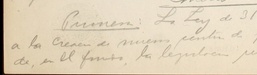 Primera: La Ley de 31
a la creación de nuevos centros de
de, en el fondo, la legislación